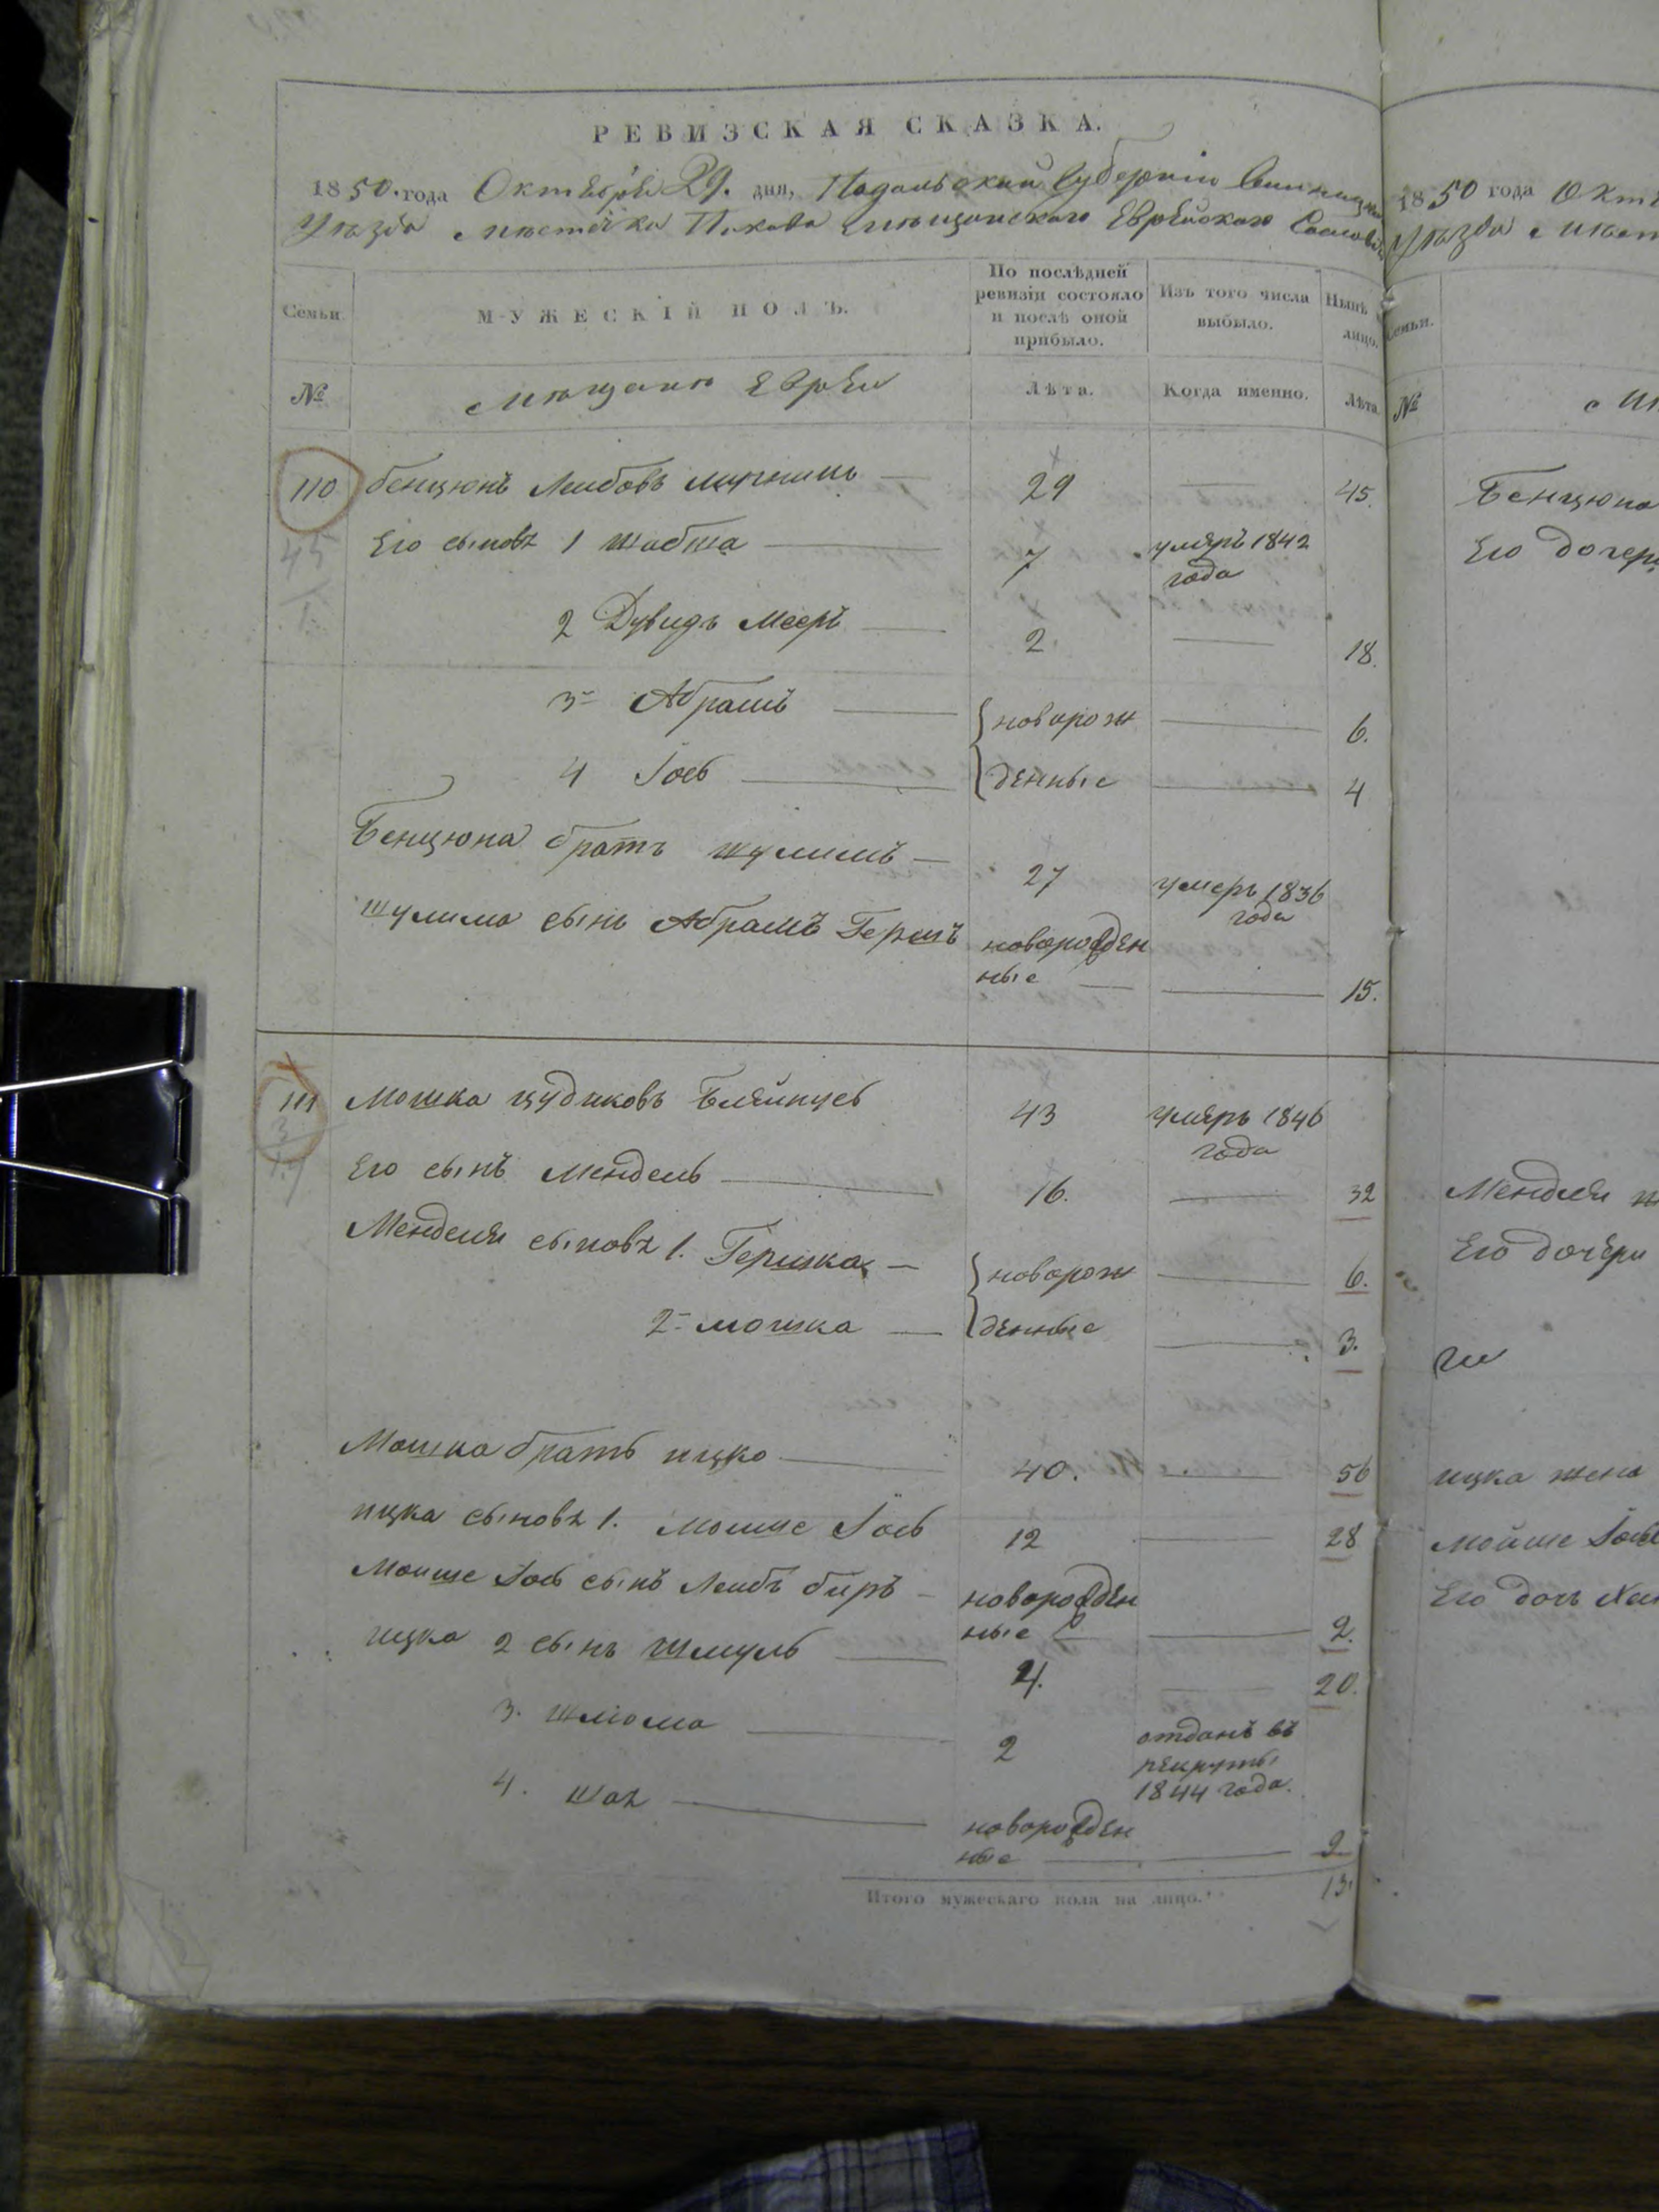 РЕВИЗСКАЯ СКАЗКА.
1850. года Октября 29. дня, Подольской Губернии Винницкаго
Уѣзда мѣстечка Пикова мѣщанскаго Еврейскаго Сословія
Семьи.
МУЖЕСКІЙ ПОЛЪ.
По послѣдней ревизіи состояло и послѣ оной прибыло.
Изъ того числа выбыло.
Нынѣ на лицо.
№
мѣщане Евреи
Лѣта.
Когда именно.
Лѣта.
110 Бенцюнъ Лейбовъ — 29 — 45.
Его сыновя 1 Шабша — 7 умеръ 1842 года
2 Дувидъ Мееръ — 2. — 18.
3й Абрамъ — новорож — 6.
4 Іось — денные — 4
Бенцюна братъ Шулимъ — 27 умеръ 1836 года
Шулима сынъ Абрамъ Гершъ новорожден
ные — — 15.
111 Мошка Цудиковъ 43 умеръ 1846 года
Его сынъ Мендель — 16. — 32
Менделя сыновя 1. Гершка — новорож — 6.
2й Мошка — денные — 3.
Мошка братъ Ицко — 40. — 56
Ицка сыновя 1. Мошие Іось 12 — 28
Моише Іось сынъ Лейбъ Биръ — новорожден
ные — — 2.
Ицка 2 сынъ Шмуль — 4. — 20.
3. Шліома — 2 отданъ въ рекруты 1844 года.
4. Шая — новорожден
ные — 2
Итого мужескаго пола на лицо. 13.
1850 года Октя
Уѣзда мѣст
Семьи.
№
мѣ
Бенцюна
Его дочери
Менделя ж
Его дочери
Ицка жена
Мойше Іось
Его дочь